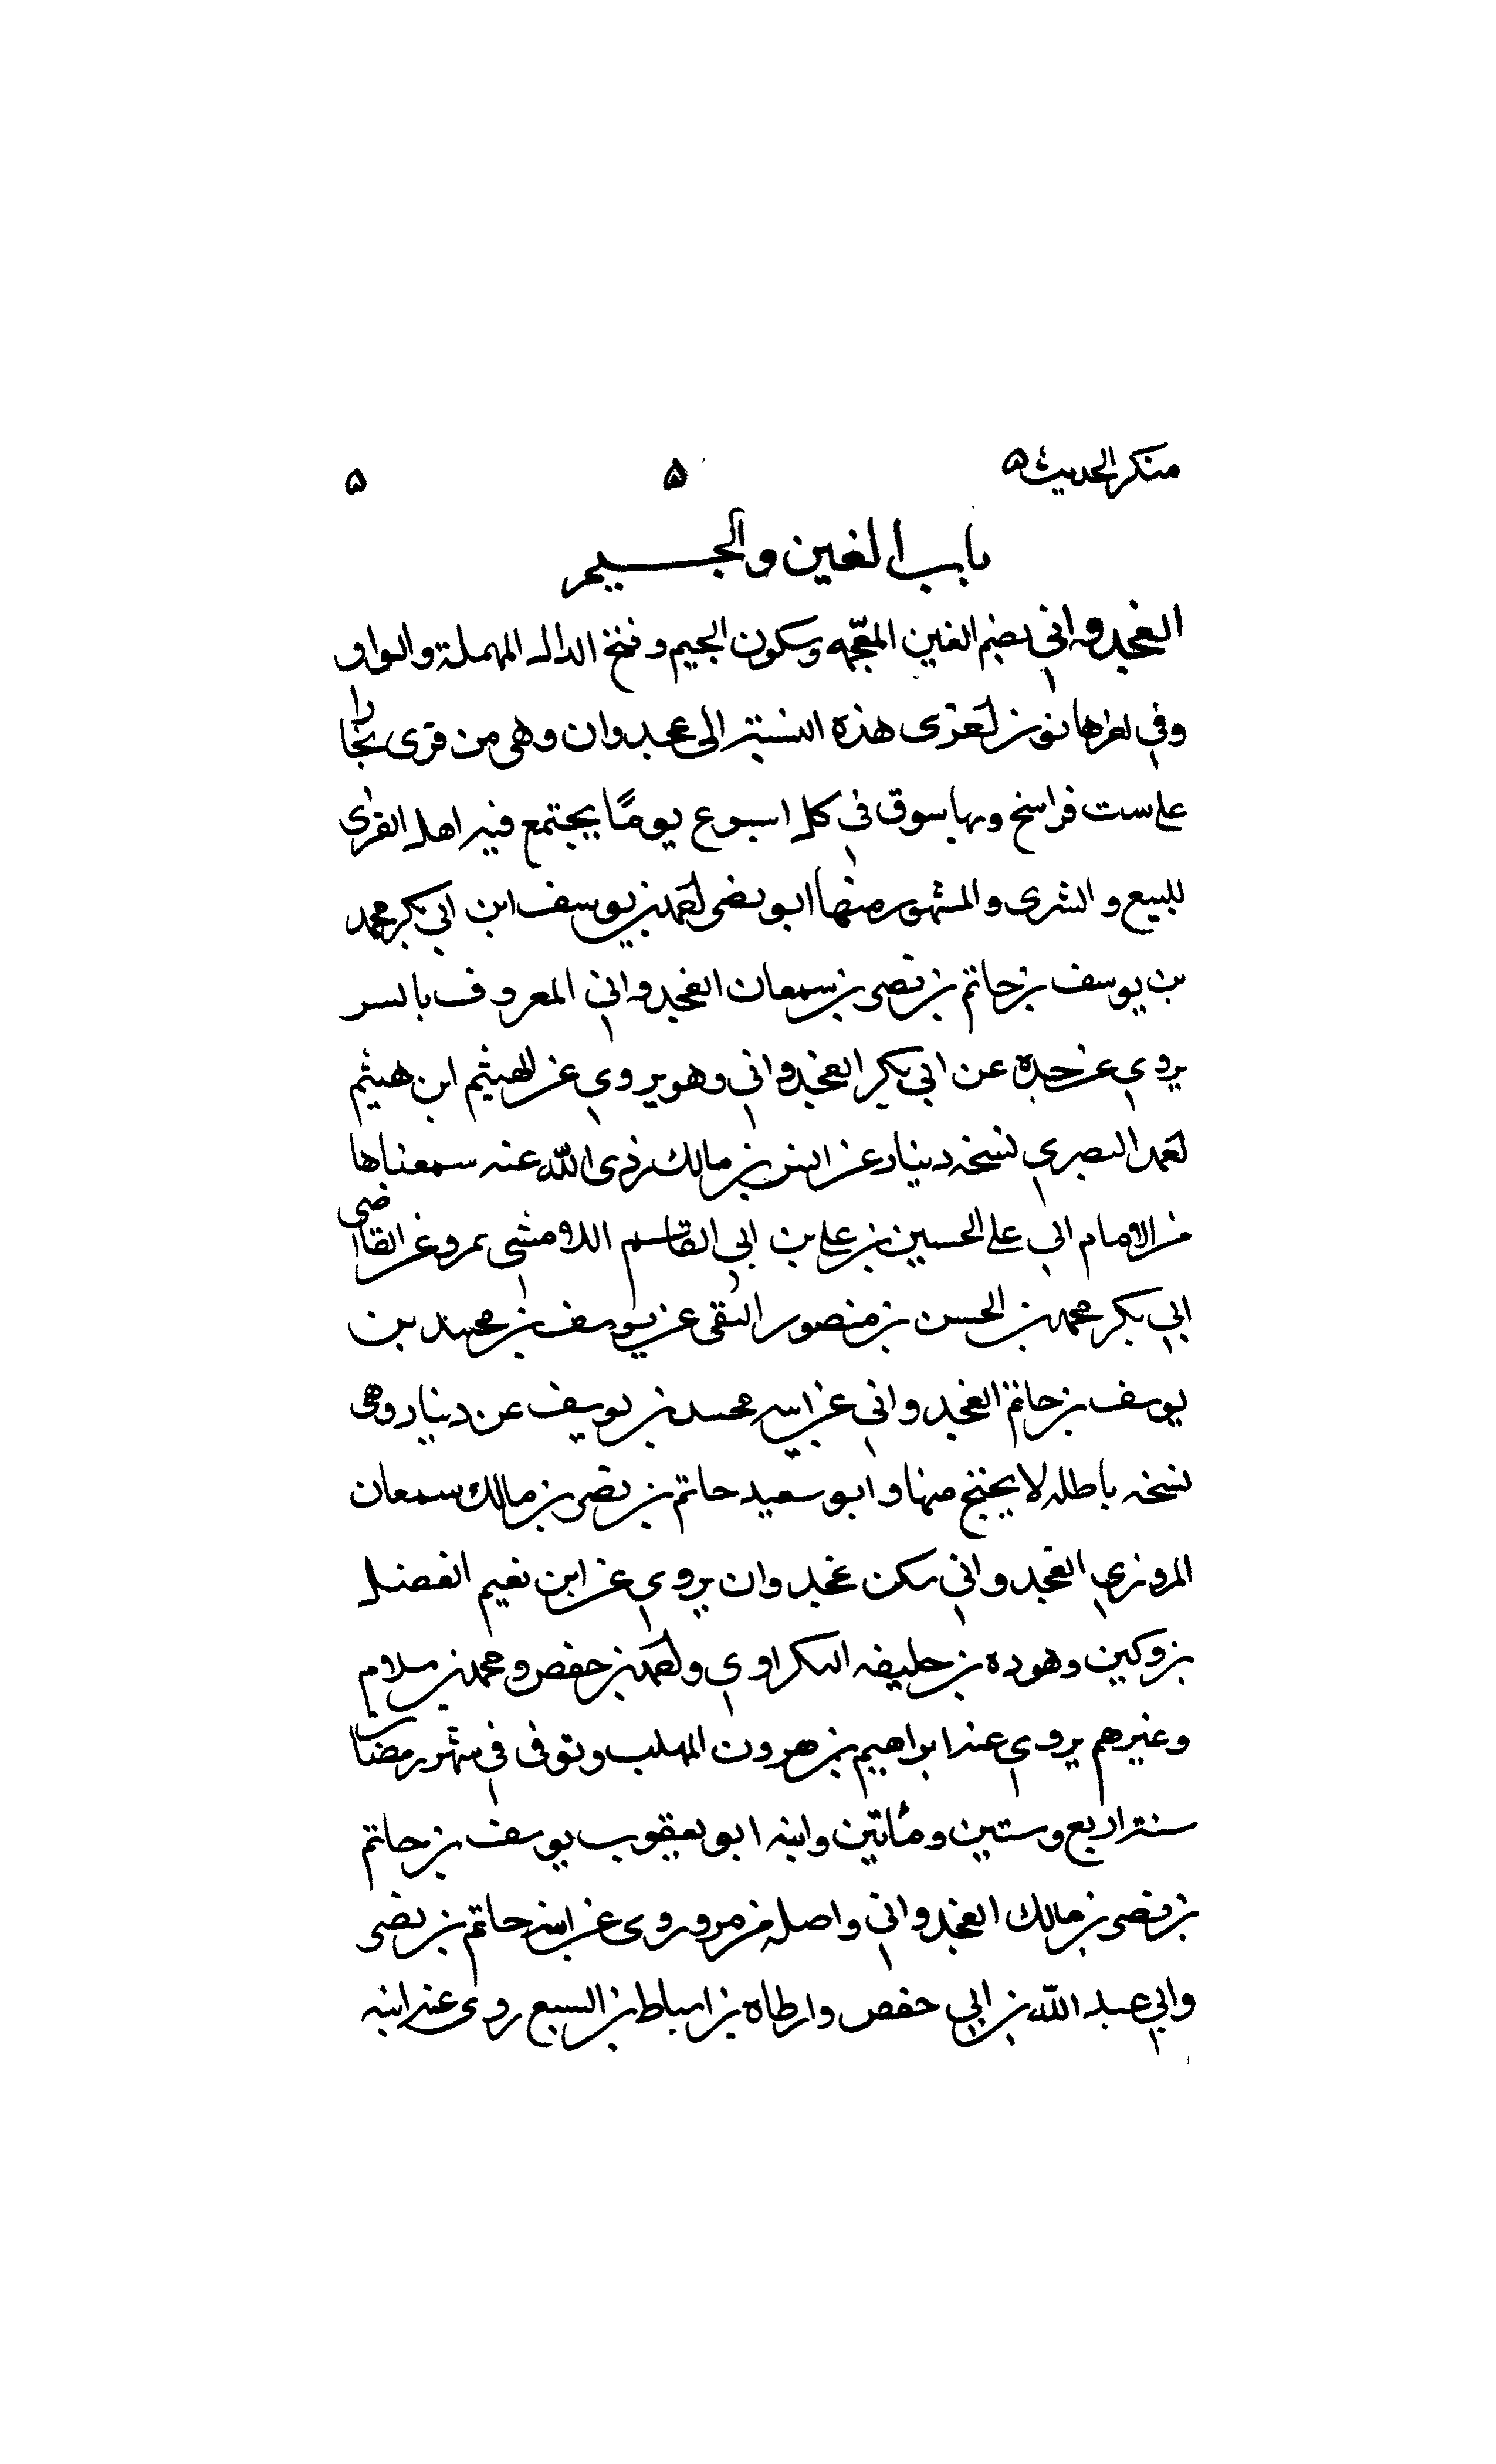 منكر الحديث ه ه ه
باب الغين والجيم
الغجدواني بضم الغين المعجمه وسكون الجيم وفتح الدال المهملة والواو
وفي اخرها نون نعزى هذه النسبة الى غجدوان وهي من قرى بخارا
على ست فراسخ وبها سوق في كل اسبوع يومًا يجتمع فيه اهل القرى
للبيع والشرى والمشهور منها ابو نصر احمد بن يوسف ابن ابي بكر محمد
بن يوسف بن حاتم بن نصر بن سمعان الغجدواني المعروف بالسر
يروي عن جده عن ابي بكر الغجدواني وهو يروي عن الهيثم ابن هيثم
احمد البصري نسخه دينار عن انس بن مالك رضى الله عنه سمعناها
من الامام ابي علي الحسين بن علي بن ابي القاسم اللامشي بمرو عن القاضي
ابي بكر محمد بن الحسن بن منصور النسفي عن يوسف بن محمد بن
يوسف بن حاتم الغجدواني عن ابيه محمد بن يوسف عن دينار وهي
نسخه باطله لا يحتج منها وابو سعيد حاتم بن نصر بن مالك سمعان
المروزي الغجدواني سكن غجدوان يروي عن ابن نعيم الفضل
بن دكين وهوده بن خليفه البكراوي واحمد بن حفص ومحمد بن سلام
وغيرهم يروي عنه ابراهيم بن هرون المهلب وتوفى في شهر رمضان
سنة اربع وستين ومأتين وابنه ابو يعقوب يوسف بن حاتم
بن نصر بن مالك الغجدواني واصله من مرو روى عن ابيه حاتم بن نصر
وابي عبد الله بن ابي حفص وارطاه بن اسباط بن اليسع روى عنه ابنه